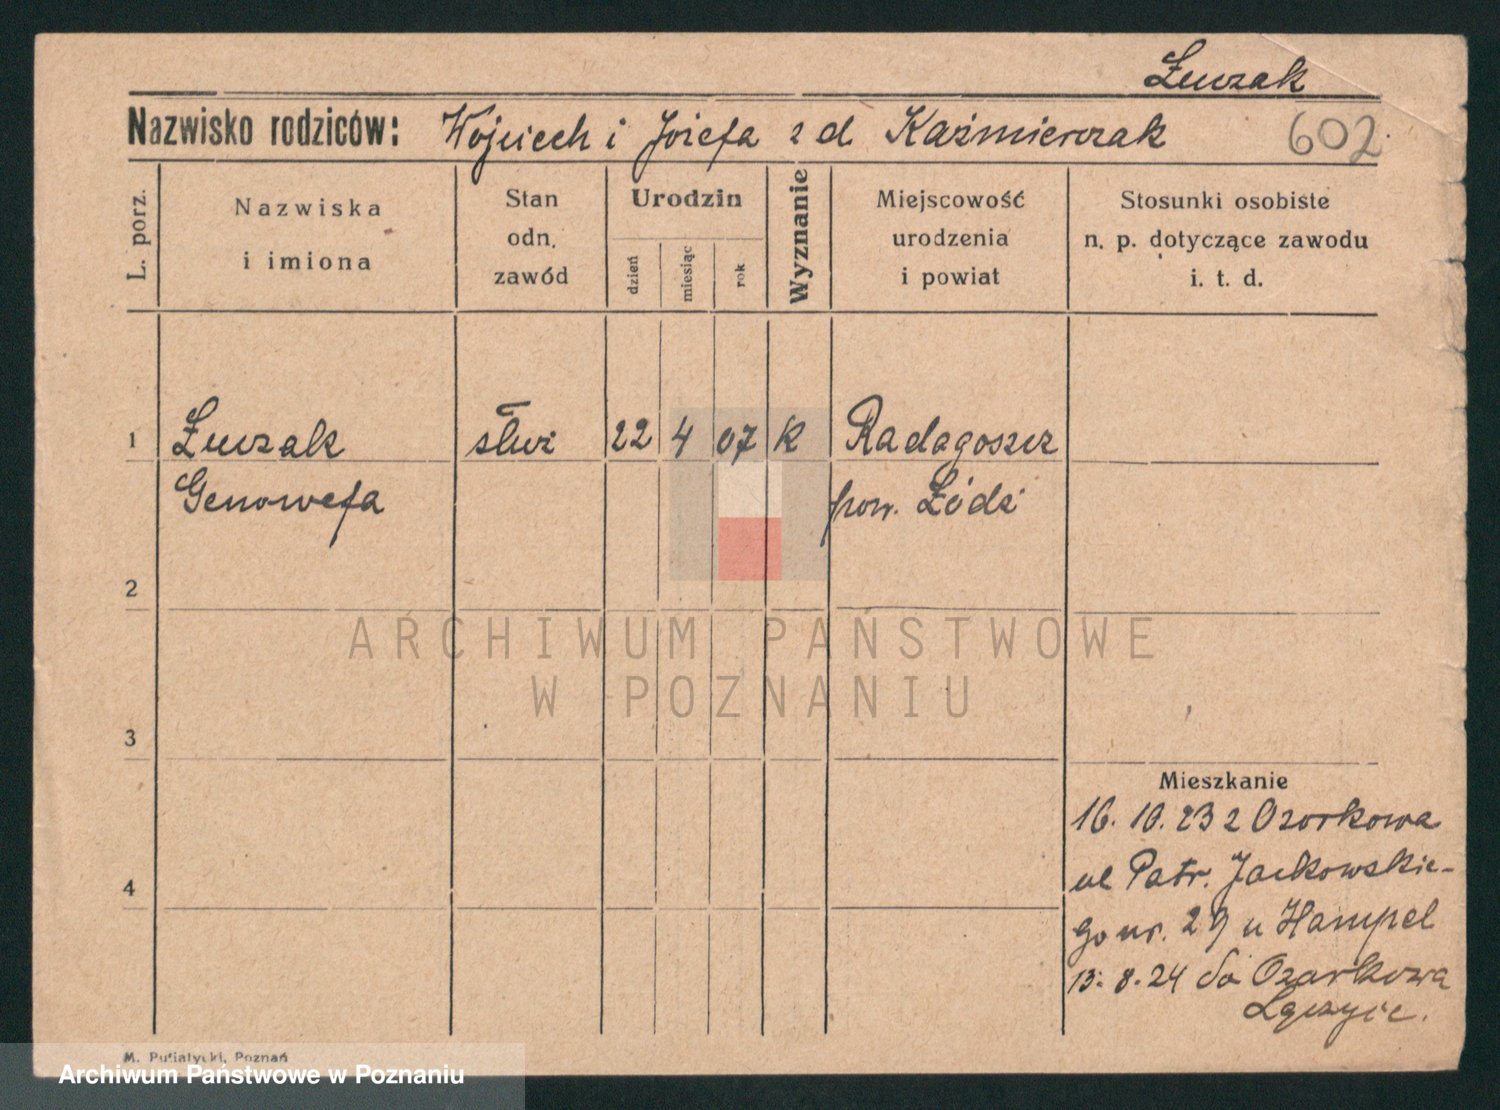 Łuczak
Nazwisko rodziców: Wojciech i Józefa z d. Kaźmierczak 602
L. porz.
Nazwiska
i imiona
Stan
odn.
zawód
Urodzin
dzień
miesiąc
rok
Wyznanie
Miejscowość
urodzenia
i powiat
Stosunki osobiste
n. p. dotyczące zawodu
i. t. d.
1 Łuczak służ 22 4 07 k Radagoszcz
Genowefa pow. Łódź
2
ARCHIWUM PAŃSTWOWE
W POZNANIU
3
Mieszkanie
16. 10. 23 z Ozorkowa
4
ul Patr. Jackowskie-
go nr. 29 u Hampel
13. 8. 24 do Ozorkowa
Łęczyc.
M. Putiatycki, Poznań
Archiwum Państwowe w Poznaniu